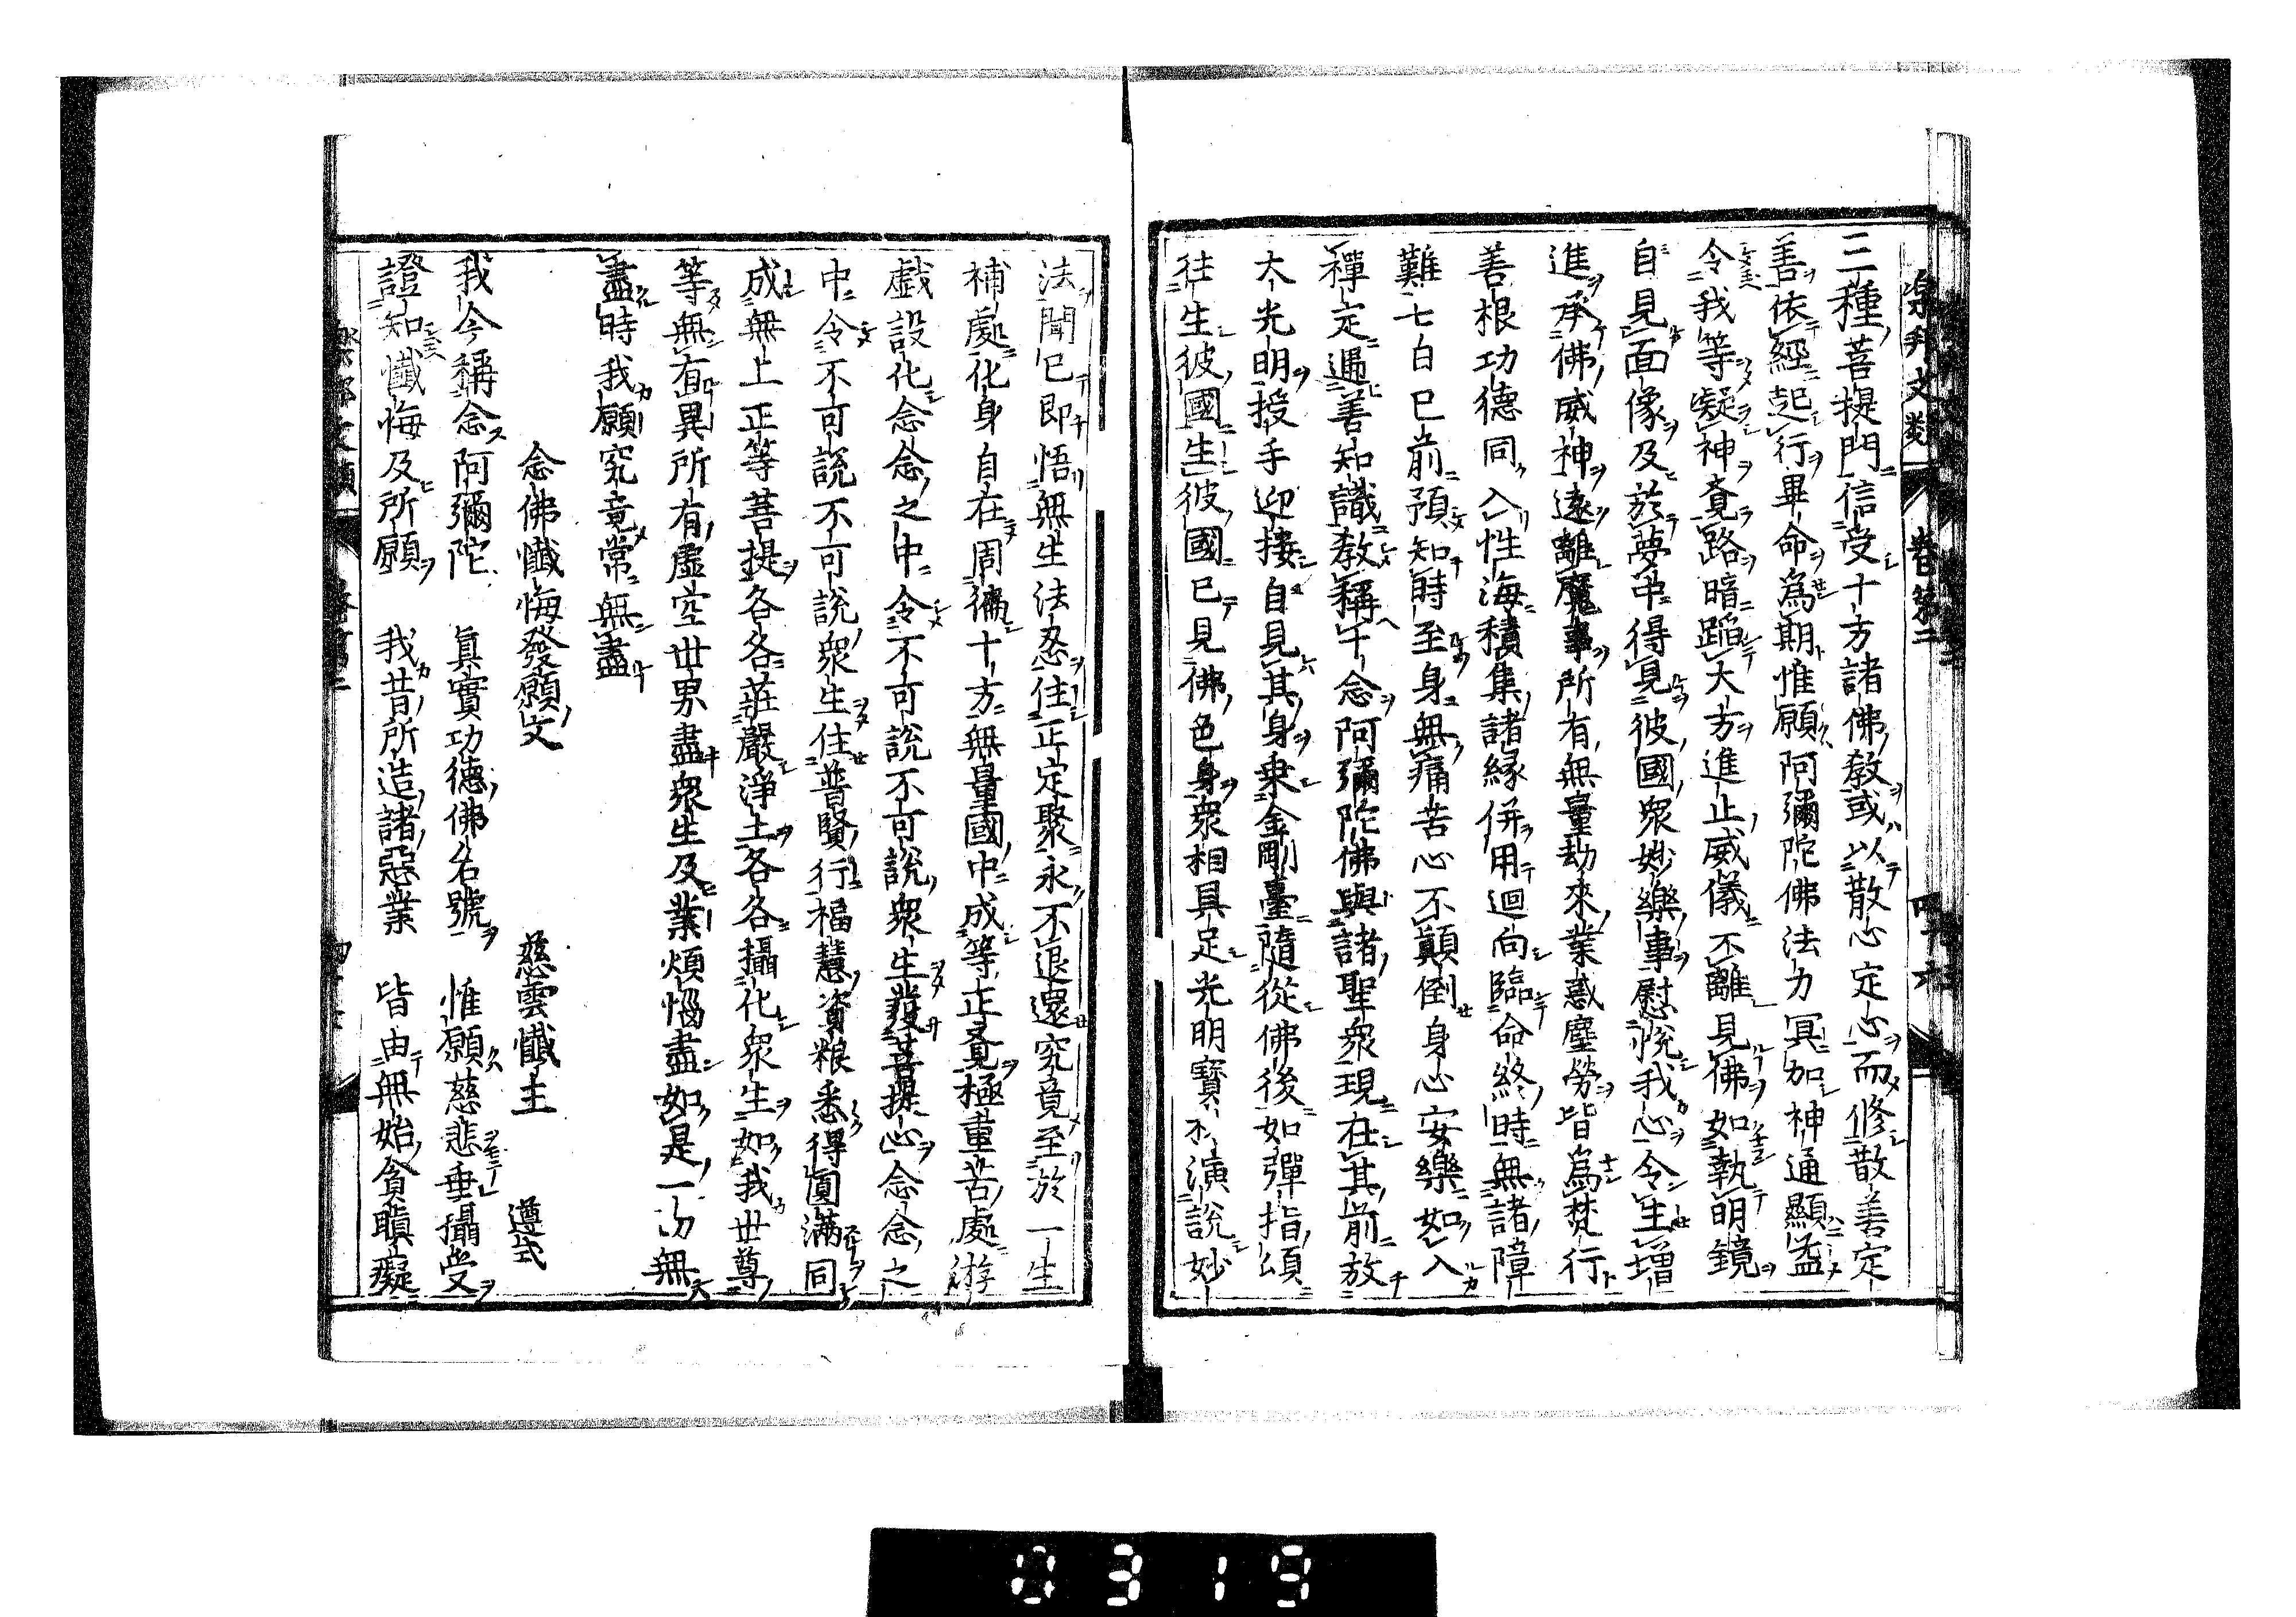 樂邦文類 卷第二 四十六
三種菩提門信受十方諸佛教或以散心定心而修散善定
善依經起行畢命為期惟願阿彌陀佛法力冥加神通顯益
令我等凝神覔路暗蹈大方進止威儀不離見佛如執明鏡
自見面像及於夢中得見彼國眾妙樂事慰悅我心令生增
進承佛威神遠離魔事所有無量劫來業惑塵勞皆為梵行
善根功德同入性海積集諸緣併用迴向臨命終時無諸障
難七日已前預知時至身無痛苦心不顛倒身心安樂如入
禪定遇善知識教稱十念阿彌陀佛與諸聖眾現在其前放
大光明授手迎接自見其身乘金剛臺隨從佛後如彈指頃
往生彼國生彼國已見佛色身眾相具足光明寶林演說妙
法聞已即悟無生法忍住正定聚永不退還究竟至於一生
補處化身自在周徧十方無量國中成等正覔極重苦處游
戲設化念念之中令不可說不可說眾生發菩提心念念之
中令不可說不可說眾生住普賢行福慧資粮悉得圓滿同
成無上正等菩提各各莊嚴淨土各各攝化眾生如我世尊
等無有異所有虛空世界盡眾生及業煩惱盡如是一切無
盡時我願究竟常無盡
念佛懺悔發願文 慈雲懺主 遵式
我今稱念阿彌陀 真實功德佛名號 惟願慈悲垂攝受
證知懺悔及所願 我昔所造諸惡業 皆由無始貪瞋癡
樂邦文類
0319